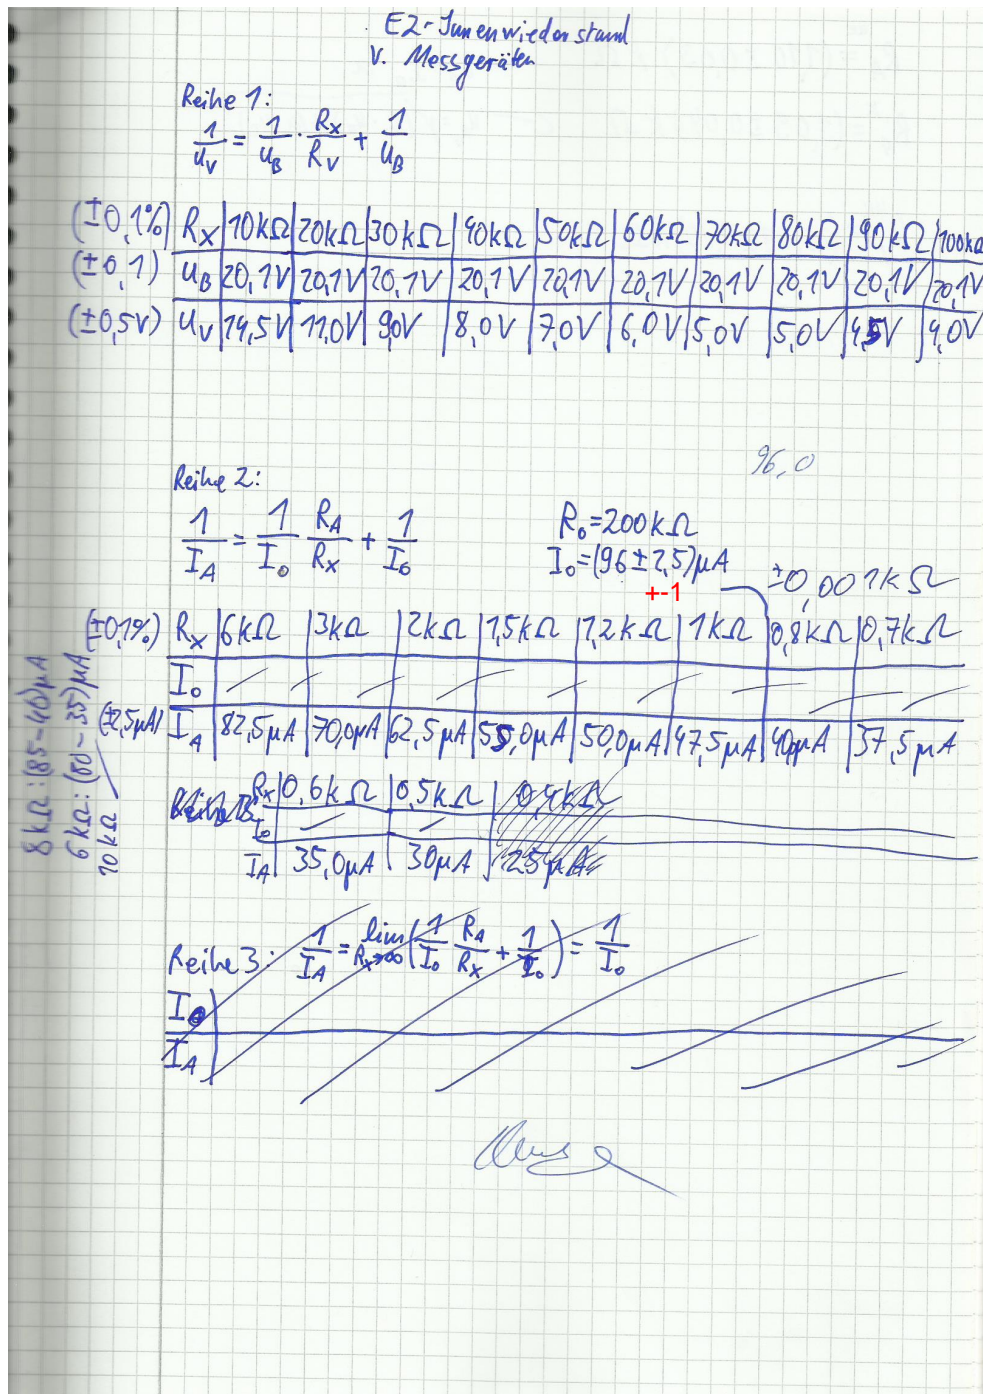 E2-Innenwiederstand
v. Messgeräten
Reihe 1:
1/U_V = 1/U_B · R_X/R_V + 1/U_B
(±0,1%) R_X | 10kΩ | 20kΩ | 30kΩ | 40kΩ | 50kΩ | 60kΩ | 70kΩ | 80kΩ | 90kΩ | 100kΩ
(±0,1) U_B | 20,1V | 20,1V | 20,1V | 20,1V | 20,1V | 20,1V | 20,1V | 20,1V | 20,1V | 20,1V
(±0,5V) U_V | 14,5V | 11,0V | 9,0V | 8,0V | 7,0V | 6,0V | 5,0V | 5,0V | 4,5V | 4,0V
96,0
Reihe 2:
1/I_A = 1/I_0 R_A/R_X + 1/I_0
R_0=200kΩ
I_0=(96±2,5)μA
+-1
±0,001kΩ
(±0,1%) R_X | 6kΩ | 3kΩ | 2kΩ | 1,5kΩ | 1,2kΩ | 1kΩ | 0,8kΩ | 0,7kΩ
I_0
(±2,5μA) I_A | 82,5μA | 70,0μA | 62,5μA | 55,0μA | 50,0μA | 47,5μA | 40μA | 37,5μA
8kΩ: (85-40)μA
6kΩ: (80-35)μA
10kΩ
R_X | 0,6kΩ | 0,5kΩ | 0,4kΩ
I_0
I_A | 35,0μA | 30μA | 25μA
Reihe 3: 1/I_A = lim R_X→∞ (1/I_0 R_A/R_X + 1/I_0) = 1/I_0
I_0
I_A